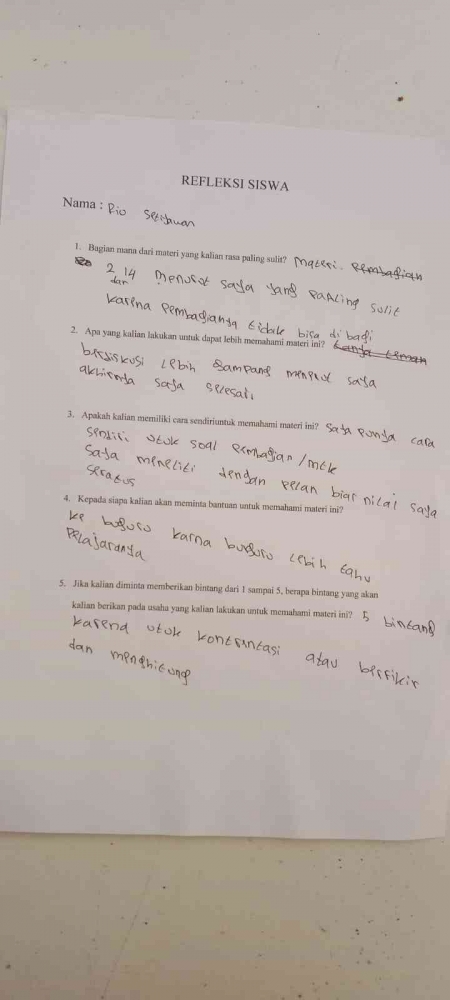 REFLEKSI SISWA
Nama : Rio Setijawan
1. Bagian mana dari materi yang kalian rasa paling sulit? Materi. Pembagian
2 dan 14 menurut saya yang paling sulit
karena pembagianya tidak bisa di bagi
2. Apa yang kalian lakukan untuk dapat lebih memahami materi ini? tanya teman
berdiskusi lebih gampang menurut saya
akhirnya saya selesai,
3. Apakah kalian memiliki cara sendiriuntuk memahami materi ini? saya punya cara
sendiri utuk soal pembagian/mtk
saya meneliti dengan pelan biar nilai saya
seratus
4. Kepada siapa kalian akan meminta bantuan untuk memahami materi ini?
ke buguru karna buguru lebih tahu
pelajaranya
5. Jika kalian diminta memberikan bintang dari 1 sampai 5, berapa bintang yang akan
kalian berikan pada usaha yang kalian lakukan untuk memahami materi ini? 5 bintang
karena utuk kontrintasi atau berfikir
dan menghitung